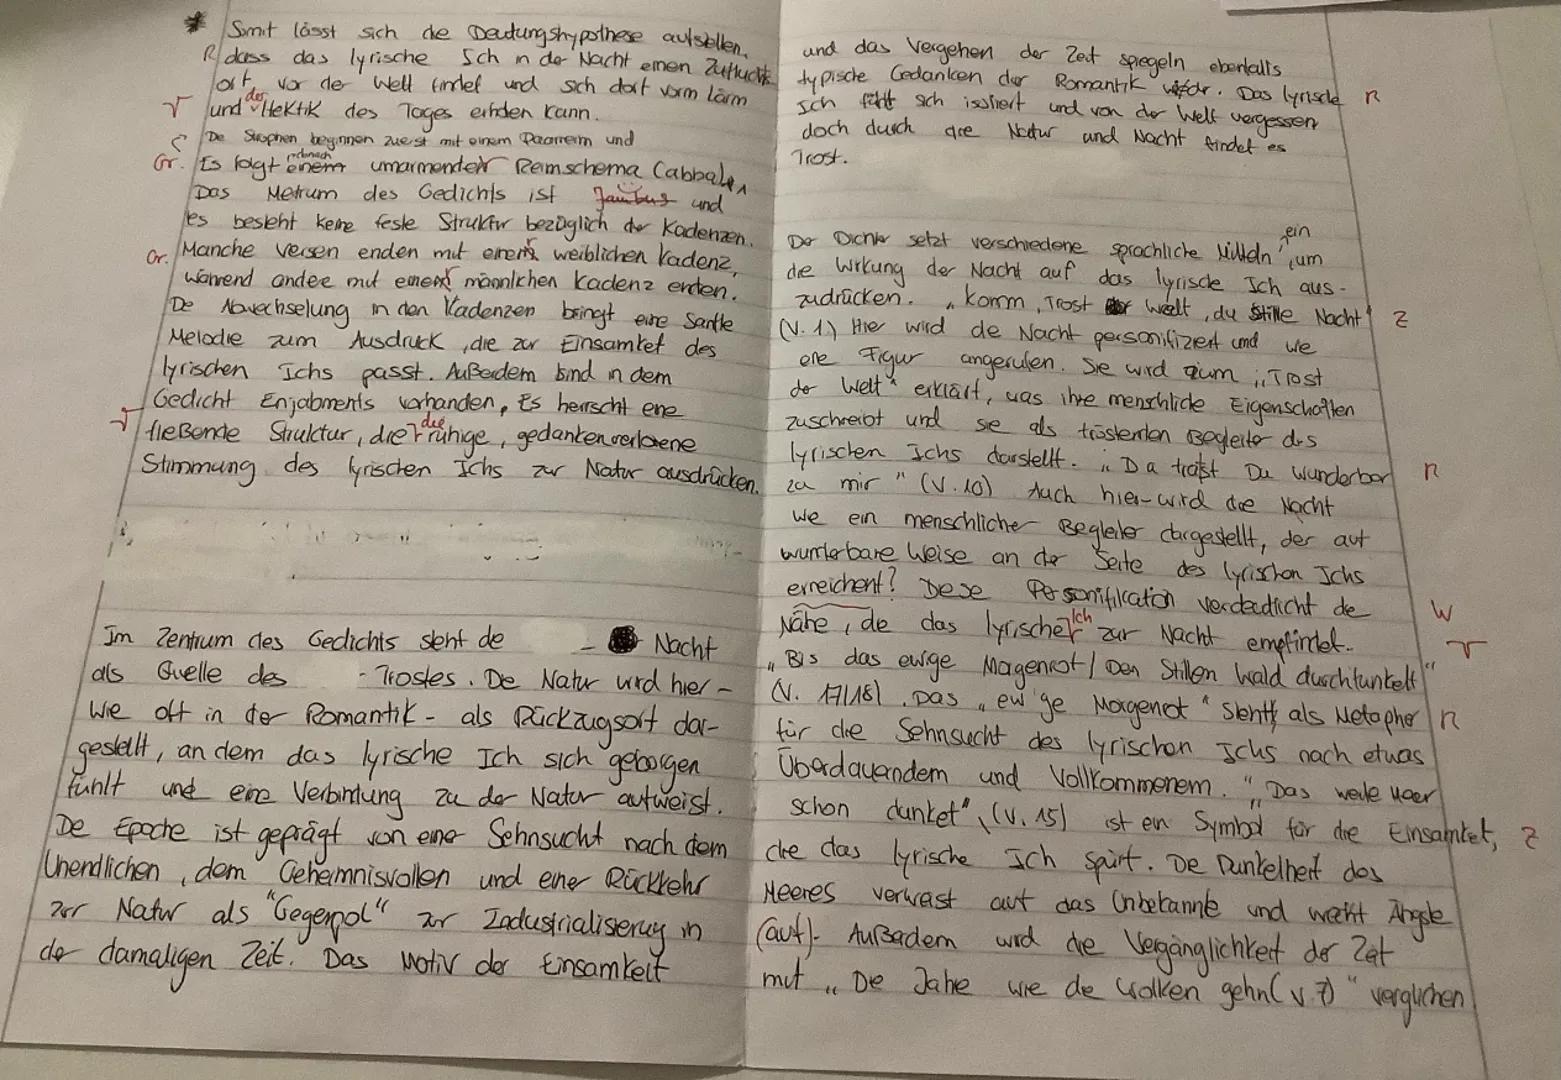 * Somit lässt sich die Deutungshypothese aufstellen,
R dass das lyrische Ich in der Nacht einen Zufluchts-
ort vor der Welt findet und sich dort vorm Lärm
und der Hektik des Tages
Die Strophen beginnen zuerst mit einem Paarreim und
Gr. Es folgt einem umarmender Reimschema
Das Metrum des Gedichts ist Jambus und
es besteht keine feste Struktur bezüglich der Kadenzen.
Gr. Manche Versen enden mit einem weiblichen Kadenz,
während andere mit einem männlichen Kadenz enden.
Die Abwechselung in den Kadenzen bringt eine sanfte
Melodie zum Ausdruck, die zur Einsamkeit des
lyrischen Ichs passt. Außerdem sind in dem
Gedicht Enjabments vorhanden, Es herrscht eine
fließende Struktur, die die ruhige, gedankenverlorene
Stimmung des lyrischen Ichs zur Natur ausdrücken.
Im Zentrum des Gedichts steht die Nacht
als Quelle des Trostes. Die Natur wird hier -
wie oft in der Romantik - als Rückzugsort dar-
gestellt, an dem das lyrische Ich sich geborgen
fühlt und eine Verbindung zu der Natur aufweist.
Die Epoche ist geprägt von einer Sehnsucht nach dem
Unendlichen, dem Geheimnisvollen und einer Rückkehr
zur Natur als "Gegenpol" zur Industrialisierung in
der damaligen Zeit. Das Motiv der Einsamkeit
und das Vergehen der Zeit spiegeln ebenfalls
typische Gedanken der Romantik wieder. Das lyrische R
Ich fühlt sich isoliert und von der Welt vergessen
doch durch die Natur und Nacht findet es
Trost.
Der Dichter setzt verschiedene sprachliche Mitteln ein, um
die Wirkung der Nacht auf das lyrische Ich aus-
zudrücken. „Komm, Trost der Welt, du stille Nacht" Z
(V. 1) Hier wird die Nacht personifiziert und wie
eine Figur angerufen. Sie wird zum „Trost
der Welt" erklärt, was ihre menschliche Eigenschaften
zuschreibt und sie als tröstenden Begleiter des
lyrischen Ichs darstellt. „Da tratst Du wunderbar R
zu mir" (V. 10) Auch hier wird die Nacht
wie ein menschlicher Begleiter dargestellt, der auf
wunderbare Weise an der Seite des lyrischen Ichs
erreichent? Diese Personifikation verdeutlicht die W
Nähe, die das lyrische Ich zur Nacht empfindet.
„Bis das ewige Morgenrot / Den Stillen Wald durchfunkelt"
(V. 17/18). Das „ew'ge Morgenrot" steht als Metapher R
für die Sehnsucht des lyrischen Ichs nach etwas
Überdauerndem und Vollkommenem. „Das weite Meer
schon dunkel", (V. 15) ist ein Symbol für die Einsamkeit, Z
die das lyrische Ich spürt. Die Dunkelheit des
Meeres verweist auf das Unbekannte und Ängste
(auf). Außerdem wird die Vergänglichkeit der Zeit
mit „Die Jahre wie die Wolken gehn (V. 7)" verglichen